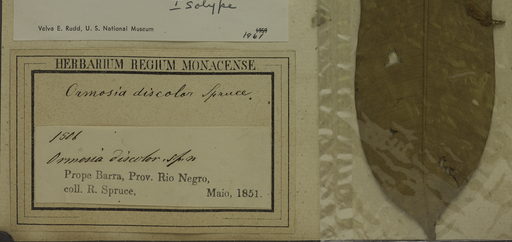 Isotype
Velva E. Rudd, U. S. National Museum
1967
HERBARIUM REGIUM MONACENSE.
Ormosia discolor Spruce.
1506
Ormosia discolor, Sp. n
Prope Barra, Prov. Rio Negro,
coll. R. Spruce, Maio, 1851.